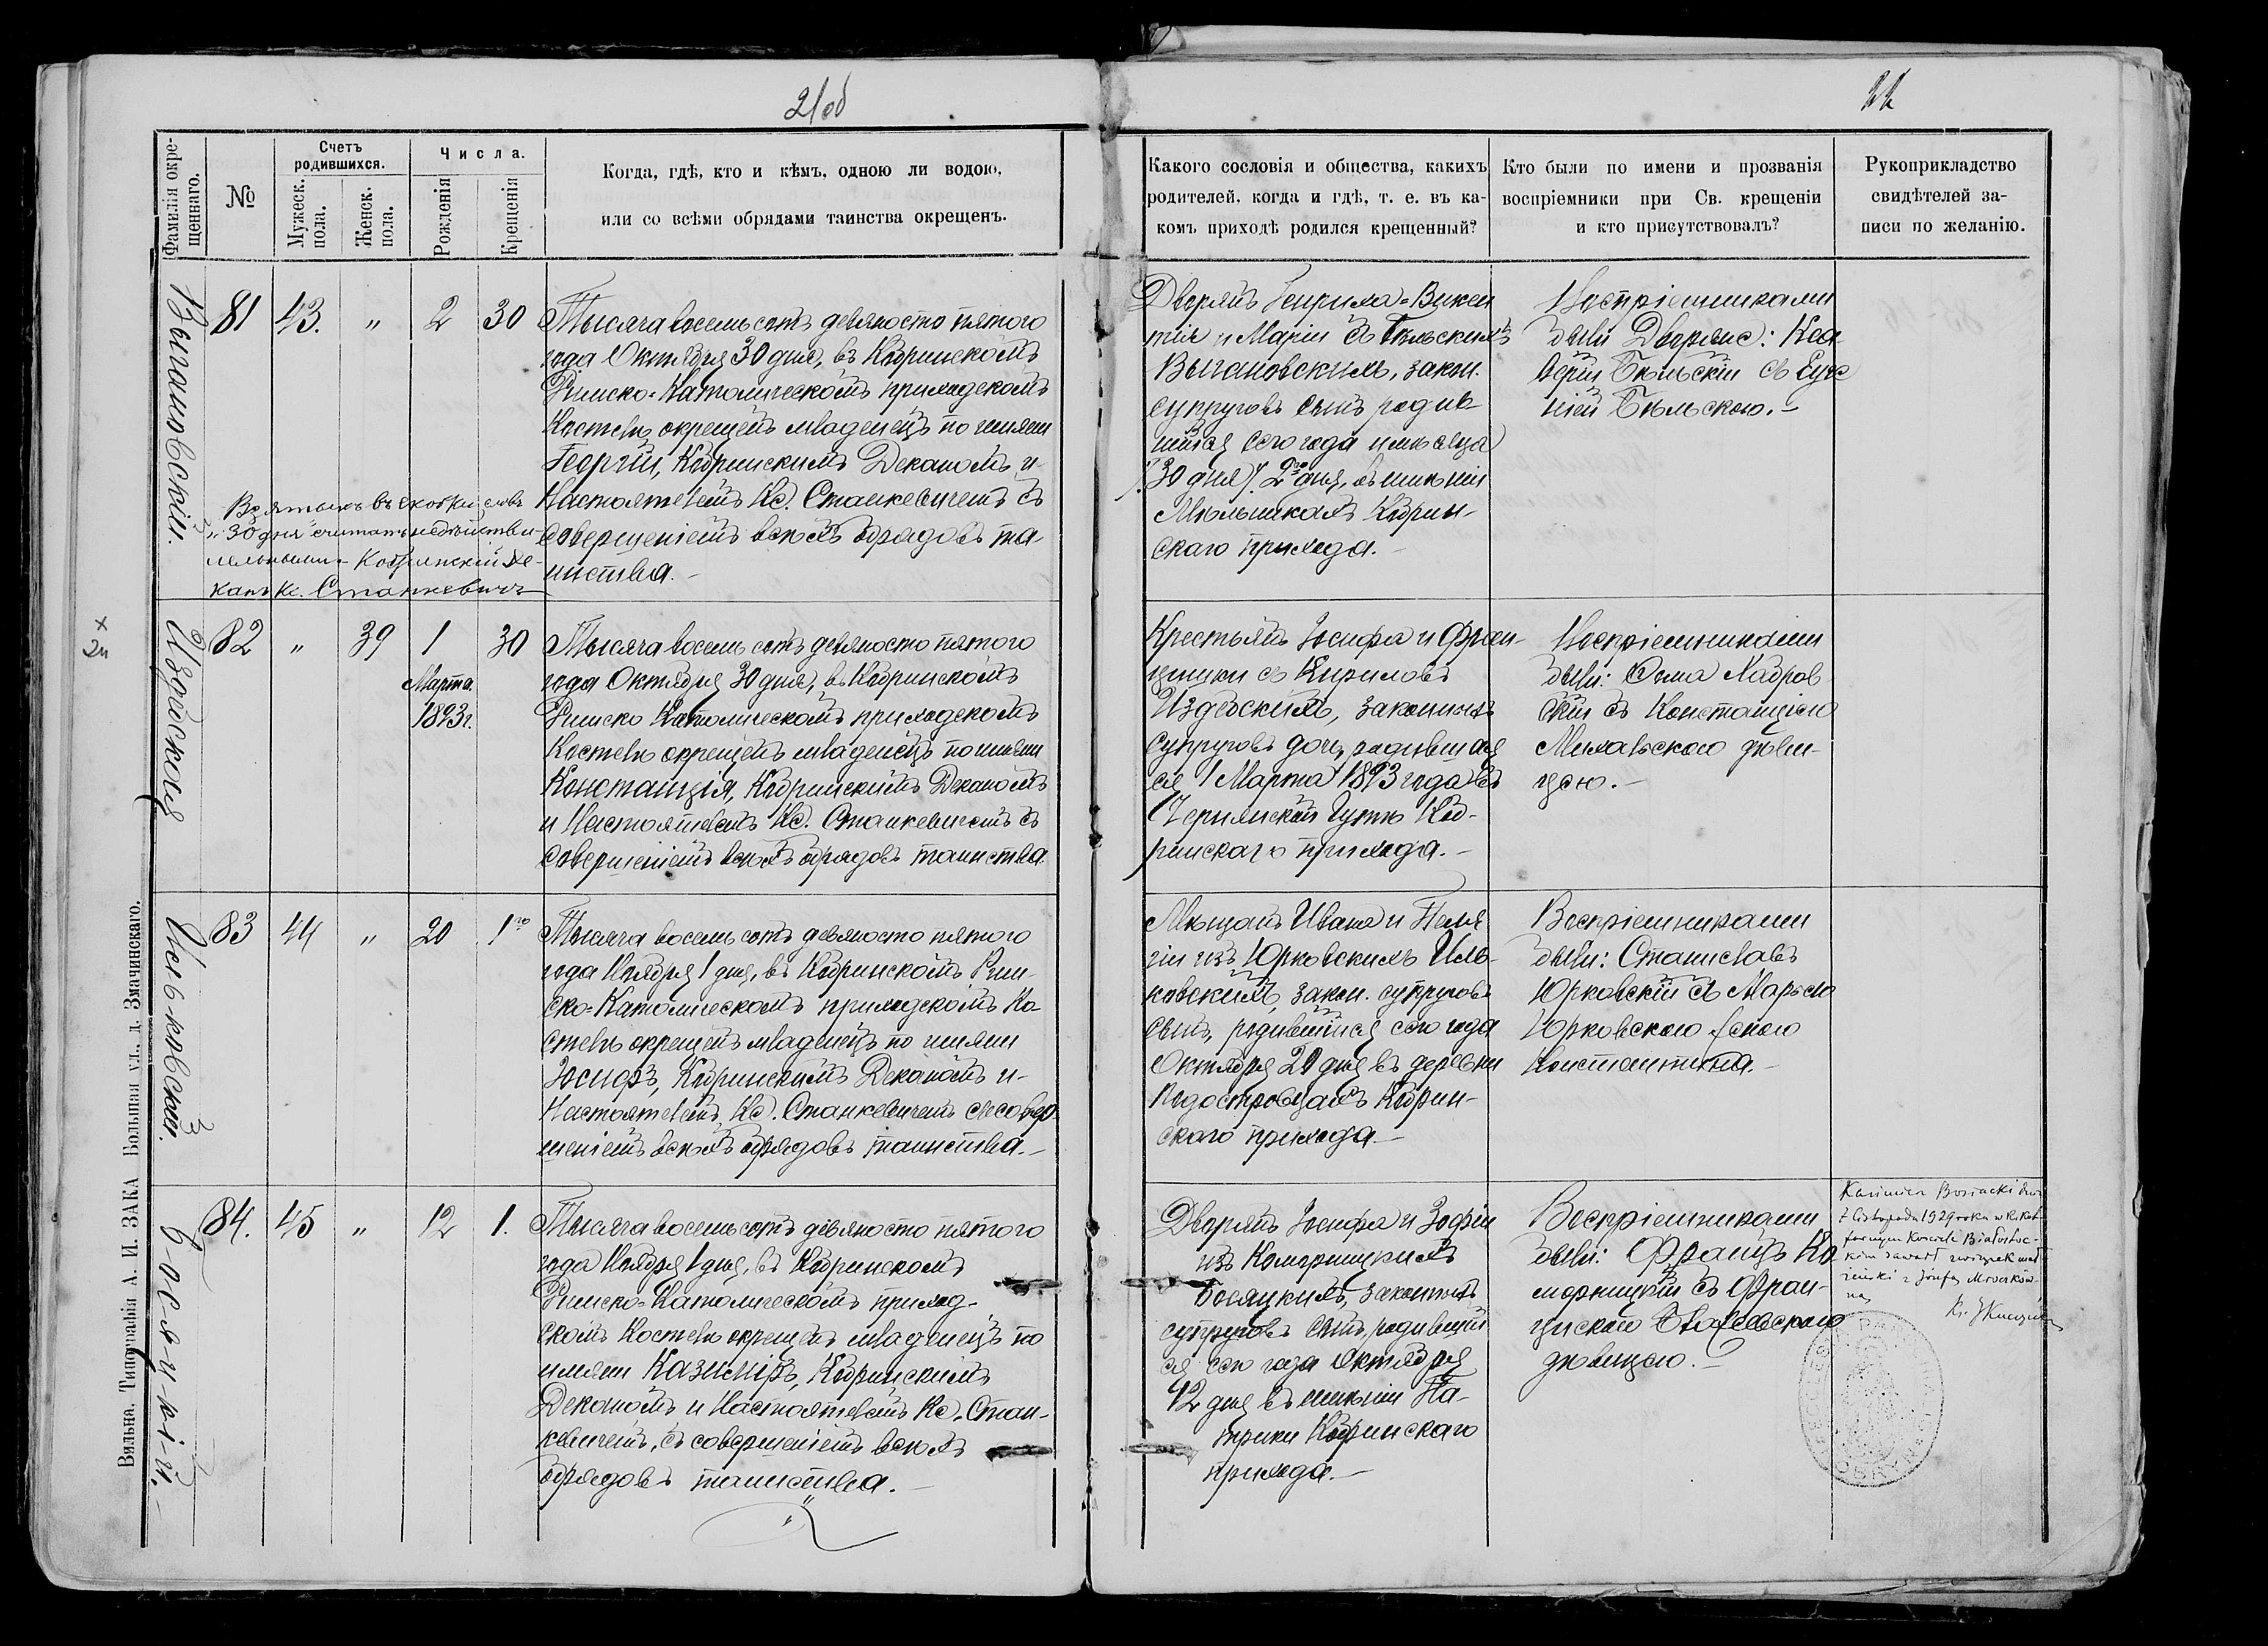 21об
22
Фамилія окре-
щеннаго.
№
Счетъ
родившихся.
Мужеск.
пола.
Женск.
пола.
Числа.
Рожденія
Крещенія
Когда, гдѣ, кто и кѣмъ, одною ли водою,
или со всѣми обрядами таинства окрещенъ.
Какого сословія и общества, какихъ
родителей, когда и гдѣ, т. е. въ ка-
комъ приходѣ родился крещенный?
Кто были по имени и прозванія
воспріемники при Св. крещеніи
и кто присутствовалъ?
Рукоприкладство
свидѣтелей за-
писи по желанію.
Выгановскій.
81 43. " 2 30
Тысяча восемь сотъ девяносто пятого
года Октября 30 дня, въ Кобринскомъ
Римско-Католическомъ приходскомъ
Костелѣ окрещенъ младенецъ по имени
Георгій, Кобринскимъ Деканомъ и
Настоятелемъ Кс. Станкевичемъ съ
совершеніемъ всѣхъ обрядовъ та-
инства.-
Взятыхъ въ скобки словъ
"30 дня" считать недѣйстви-
тельными - Кобринскій Де-
канъ Кс. Станкевичъ
Дворянъ Генриха-Викен
тія и Маріи съ Бѣльскихъ
Выгановскихъ, закон.
супруговъ сынъ родив-
шійся сего года мѣсяца
/30 дня/. 2го дня, въ имѣніи
Мыльникахъ Кобрин-
скаго прихода.-
Воспріемниками
были Дворяне: Кса
верій Бѣльскій съ Евге
ніей Бѣльскою.-
Издебская
82 " 39 1 30
Марта
1893г.
Тысяча восемь сотъ девяносто пятого
года Октября 30 дня, въ Кобринскомъ
Римско Католическомъ приходскомъ
Костелѣ окрещенъ младенецъ по имени
Констанція, Кобринскимъ Деканомъ
и Настоятелемъ Кс. Станкевичемъ съ
совершеніемъ всѣхъ обрядовъ таинства
Крестьянъ Іосифа и Фран-
цишки съ Кириловъ
Издебскихъ, законныхъ
супруговъ дочь, родившая
ся 1 Марта 1893 года въ
Чернянской Гутѣ Коб-
ринскаго прихода.-
Воспріемниками
были: Ѳома
съ Констанціею
дѣви-
цею.-
Ильковскій.
83 44 " 20 1го
Тысяча восемь сотъ девяносто пятого
года Ноября 1 дня, въ Кобринскомъ Рим-
ско-Католическомъ приходскомъ Ко-
стелѣ окрещенъ младенецъ по имени
Іосифъ, Кобринскимъ Деканомъ и
Настоятелемъ Кс. Станкевичемъ съ совер-
шеніемъ всѣхъ обрядовъ таинства.-
Мѣщанъ Ивана и Пела
гіи изъ Юрковскихъ Иль-
ковскихъ, закон. супруговъ
сынъ, родившійся сего года
Октября 20 дня въ деревни
Кобрин-
скаго прихода.-
Воспріемниками
были: Станиславъ
Юрковскій съ Марьею
Юрковскою женою
Константина.-
Босяцкій.-
84. 45 " 12 1.
Тысяча восемь сотъ девяносто пятого
года Ноября 1 дня, въ Кобринскомъ
Римско-Католическомъ приход-
скомъ Костелѣ окрещенъ младенецъ по
имени Казиміръ, Кобринскимъ
Деканомъ и Настоятелемъ Кс. Стан-
кевичемъ, съ совершеніемъ всѣхъ
обрядовъ таинства.-
Дворянъ Іосифа и Зофіи
изъ Коморницкихъ
Босяцкихъ, законныхъ
супруговъ сынъ, родившій
ся сего года Октября
12 дня въ имѣніи Па-
трики Кобринскаго
прихода.-
Воспріемниками
были: Францъ Ко
морницкій съ Фран-
цискою
дѣвицею.-
Kazimierz Bosiacki dnia
7 listopada 1929 roku w
Kościele Białostoc-
kim zawarł związek mał-
żeński z Józefą
Вильна, Типографія А. И. ЗАКА Большая ул., д. Змачинскаго.